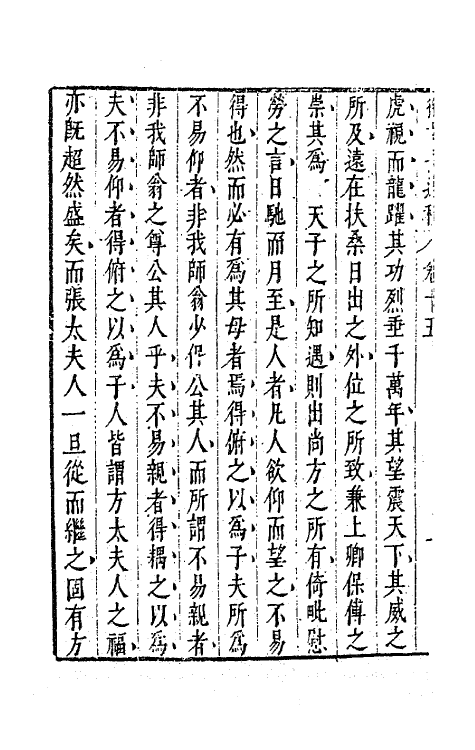 虎視而龍躍其功烈垂千萬年其望震天下其威之
所及遠在扶桑日出之外位之所致兼上卿保傅之
崇其爲　天子之所知遇則出尚方之所有倚毗慰
勞之言日馳而月至是人者凡人欲仰而望之不易
得也然而必有爲其母者焉得俯之以爲子夫所爲
不易仰者非我師翁少保公其人而所謂不易親者
非我師翁之尊公其人乎夫不易親者得耦之以爲
夫不易仰者得俯之以爲子人皆謂方太夫人之福
亦既超然盛矣而張太夫人一旦從而繼之固有方